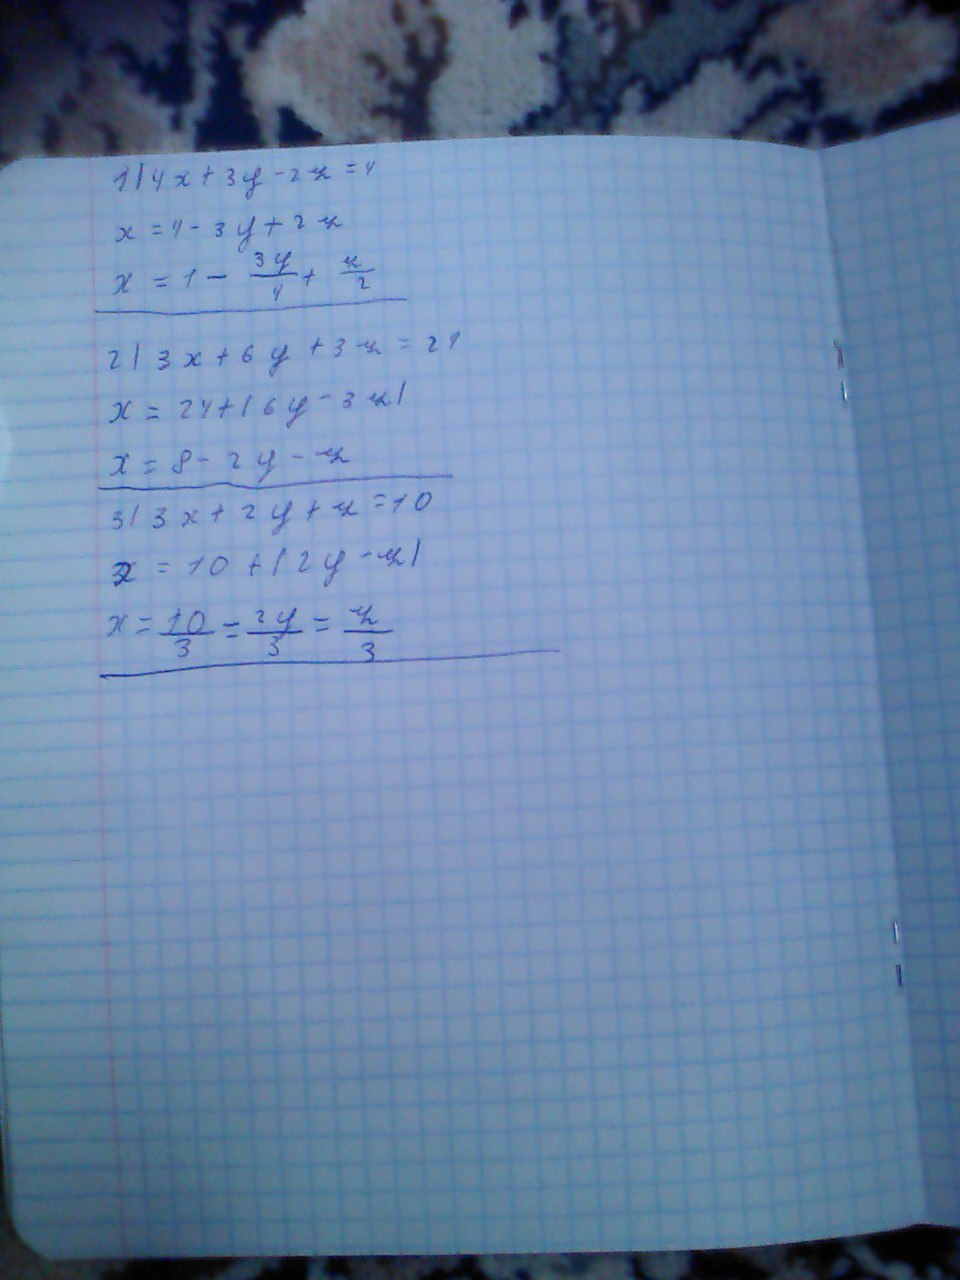 1) 4x + 3y - 2z = 4
x = 4 - 3y + 2z
x = 1 - 3y/4 + z/2
2) 3x + 6y + 3z = 24
x = 24 + (6y - 3z)
x = 8 - 2y - z
3) 3x + 2y + z = 10
x = 10 + (2y - z)
x = 10/3 = 2y/3 = z/3